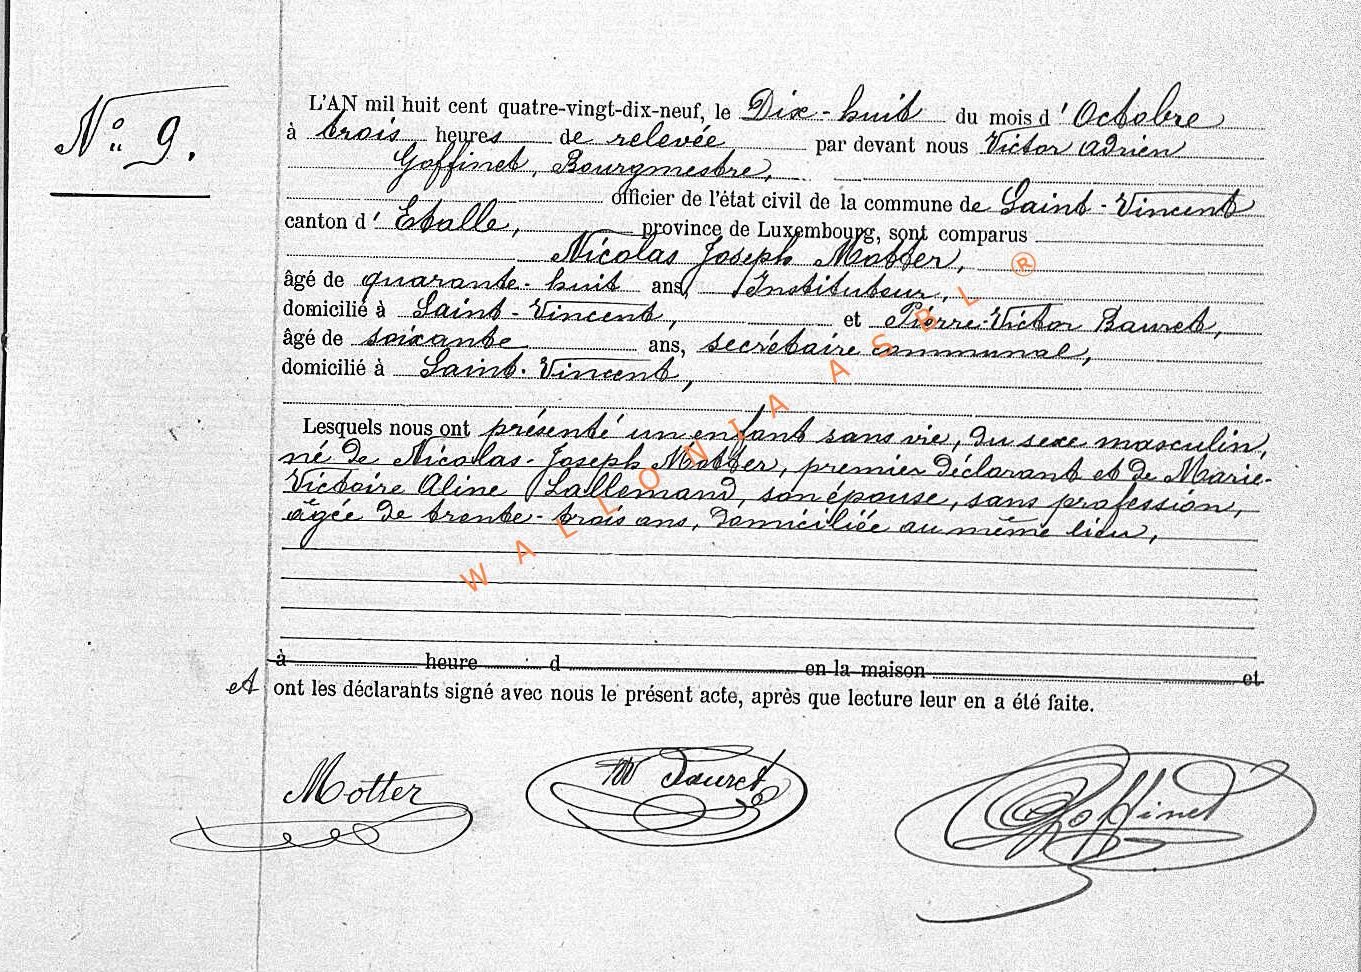 N° 9.
L'AN mil huit cent quatre-vingt-dix-neuf, le Dix-huit du mois d'Octobre
à trois heures de relevée par devant nous Victor Adrien
Goffinet, Bourgmestre,
officier de l'état civil de la commune de Saint-Vincent
canton d'Etalle, province de Luxembourg, sont comparus
Nicolas Joseph Motter,
âgé de quarante-huit ans, Instituteur,
domicilié à Saint-Vincent, et Pierre-Victor Bauret,
âgé de soixante ans, secrétaire communal,
domicilié à Saint-Vincent,
Lesquels nous ont présenté un enfant sans vie, du sexe masculin,
né de Nicolas-Joseph Motter, premier déclarant et de Marie-
Victoire Aline Lallemand, son épouse, sans profession,
âgée de trente-trois ans, domiciliée au même lieu,
à heure d en la maison et
et ont les déclarants signé avec nous le présent acte, après que lecture leur en a été faite.
Motter Bauret Goffinet
WALLONIA ASBL ®